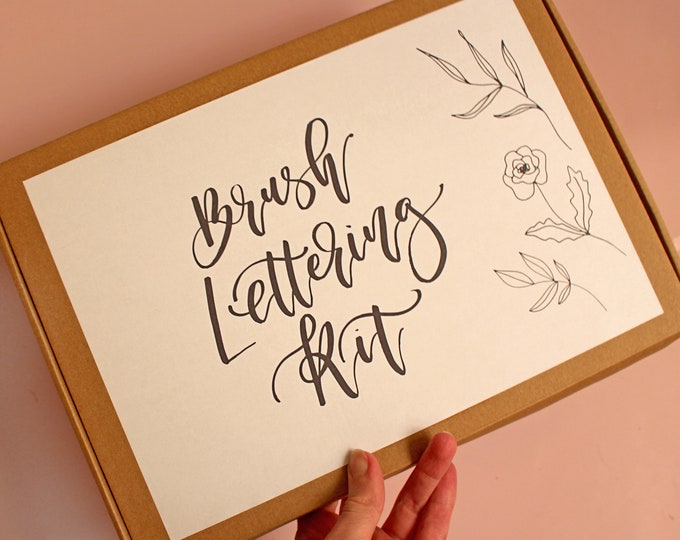 Brush
Lettering
Kit